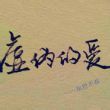 虚伪的爱